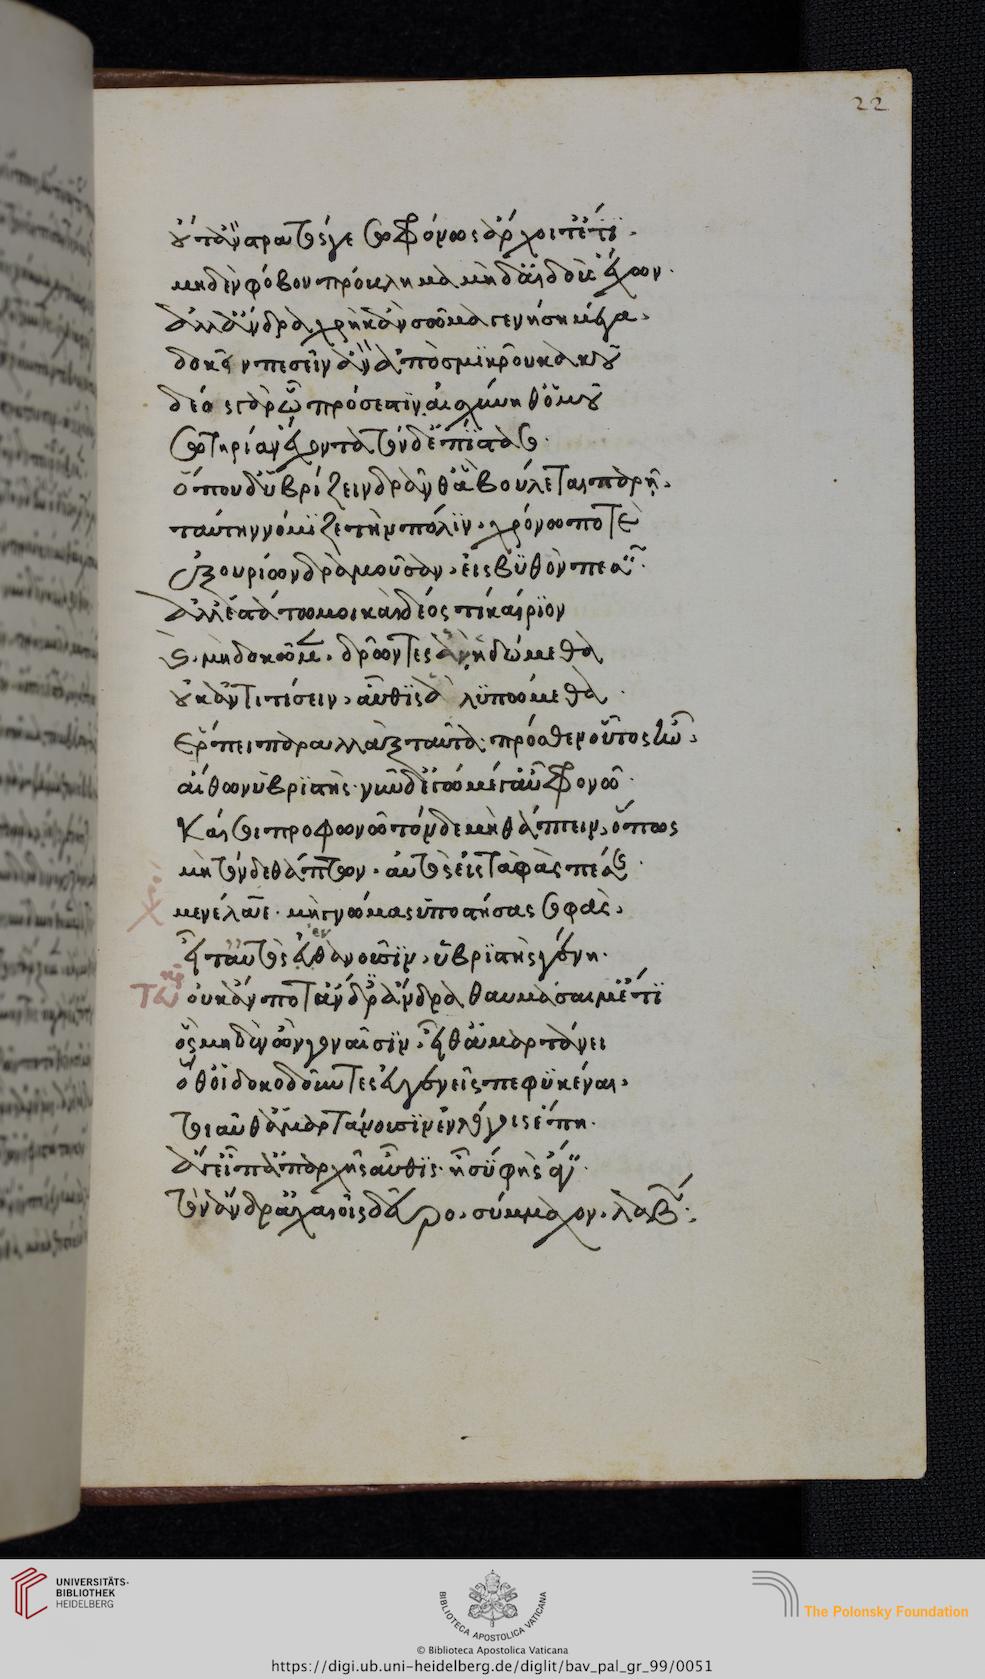 22
οὔτ' ἂν στρατός γε σωφρόνως ἄρχοιτ' ἔτι.
μηδὲν φόβου πρόβλημα μὴδ' αἰδοῦς ἔχων.
ἀλλ' ἄνδρα χρὴ κἂν σῶμα γεννήσῃ μέγα.
δοκεῖν πεσεῖν ἂν κἂν ἀπὸ σμικροῦ κακοῦ
δέος γὰρ ᾧ πρόσεστιν αἰσχύνη θ' ὁμοῦ
σωτηρίαν ἔχοντα τόνδ' ἐπίστασο.
ὅπου δ' ὑβρίζειν δρᾶν θ' ἃ βούλεται παρῇ.
ταύτην νόμιζε τὴν πόλιν. χρόνῳ ποτὲ
ἐξ οὐρίων δραμοῦσαν. εἰς βυθὸν πεσεῖν.
ἀλλ' ἑστάτω μοι καὶ δέος τι καίριον
καὶ μὴ δοκῶμεν. δρῶντες ἂν ἡδώμεθα
οὐκ ἀντιτίσειν. αὖθις ἃ λυπώμεθα.
ἕρπει παραλλὰξ ταῦτα. πρόσθεν οὗτος ἦν.
αἴθων ὑβριστής. νῦν δ' ἐγὼ μέγ' αὖ φρονῶ.
καί σοι προφωνῶ τόνδε μὴ θάπτειν, ὅπως
μὴ τόνδε θάπτων. αὐτὸς εἰς ταφὰς πέσῃς.
χο. μενέλαε. μὴ γνώμας ὑποστήσας σοφὰς.
εἶτ' αὐτὸς ἐν θανοῦσιν. ὑβριστὴς γένῃ.
τευ οὐκ ἄν ποτ' ἄνδρες ἄνδρα θαυμάσαιμ' ἔτι
ὃς μηδὲν ὢν γοναῖσιν. εἶθ' ἁμαρτάνει
ὅθ' οἱ δοκοῦντες εὐγενεῖς πεφυκέναι.
τοιαῦθ' ἁμαρτάνουσιν ἐν λόγοις ἔπη.
ἄγ' εἴπ' ἀπ' ἀρχῆς αὖθις. ἦ σὺ φῂς ἄγειν.
τὸν ἄνδρ' ἀχαιοῖς δεῦρο. σύμμαχον. λαβών.
UNIVERSITÄTS-
BIBLIOTHEK
HEIDELBERG
BIBLIOTECA APOSTOLICA VATICANA
The Polonsky Foundation
© Biblioteca Apostolica Vaticana
https://digi.ub.uni-heidelberg.de/diglit/bav_pal_gr_99/0051